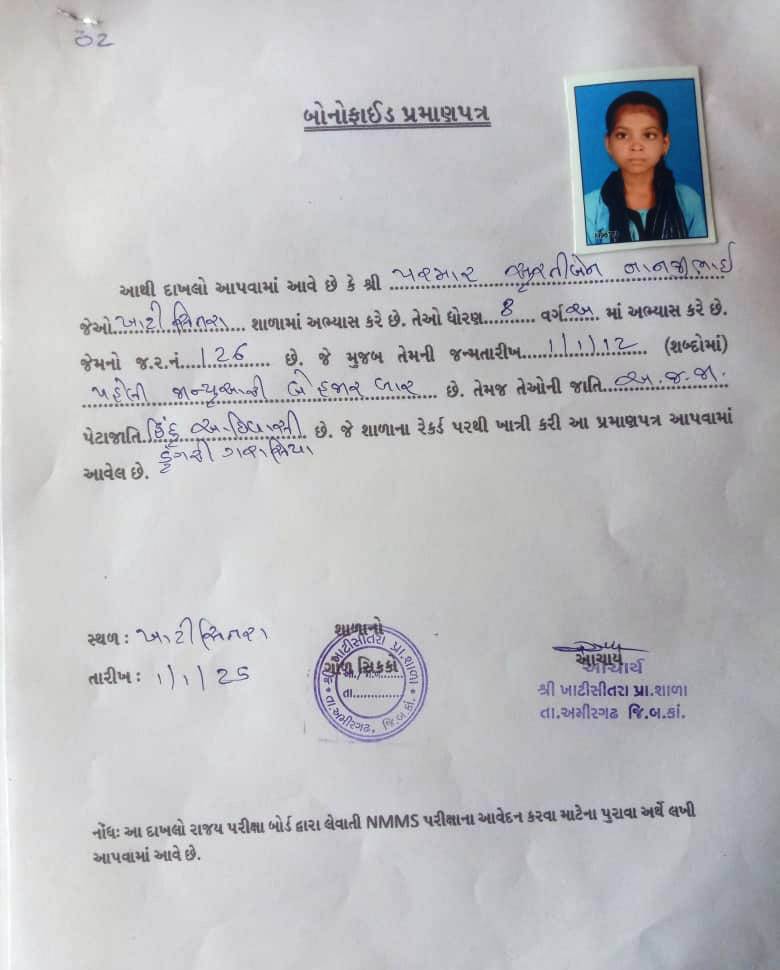 02
બોનોફાઈડ પ્રમાણપત્ર
આથી દાખલો આપવામાં આવે છે કે શ્રી પરમાર નાનજીભાઈ
જેઓ ખાટીસિતરા શાળામાં અભ્યાસ કરે છે. તેઓ ધોરણ 8 વર્ગ અ માં અભ્યાસ કરે છે.
જેમનો જ.ર.નં. 126 છે. જે મુજબ તેમની જન્મતારીખ 1/1/12 (શબ્દોમાં)
પહેલી જાન્યુઆરી બે હજાર બાર છે. તેમજ તેઓની જાતિ અ.જ.જા.
પેટાજાતિ હિંદુ આદિવાસી છે. જે શાળાના રેકર્ડ પરથી ખાત્રી કરી આ પ્રમાણપત્ર આપવામાં
ડુંગરી ગરાસિયા
આવેલ છે.
સ્થળ : ખાટીસિતરા
તારીખ : 1/1/25
શાળાનો
ગોળ સિક્કો
શ્રી ખાટીસીતરા પ્રા.શાળા
તા.
તા.અમીરગઢ, જિ.બ.કાં.
આચાર્ય
આચાર્ય
શ્રી ખાટીસીતરા પ્રા.શાળા
તા.અમીરગઢ જિ.બ.કાં.
નોંધઃ આ દાખલો રાજય પરીક્ષા બોર્ડ દ્વારા લેવાતી NMMS પરીક્ષાના આવેદન કરવા માટેના પુરાવા અર્થે લખી
આપવામાં આવે છે.